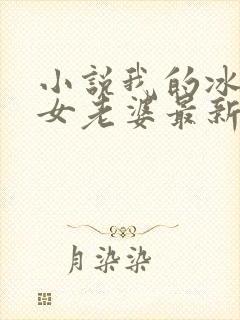 小说我的冰
女老婆最新
月染染